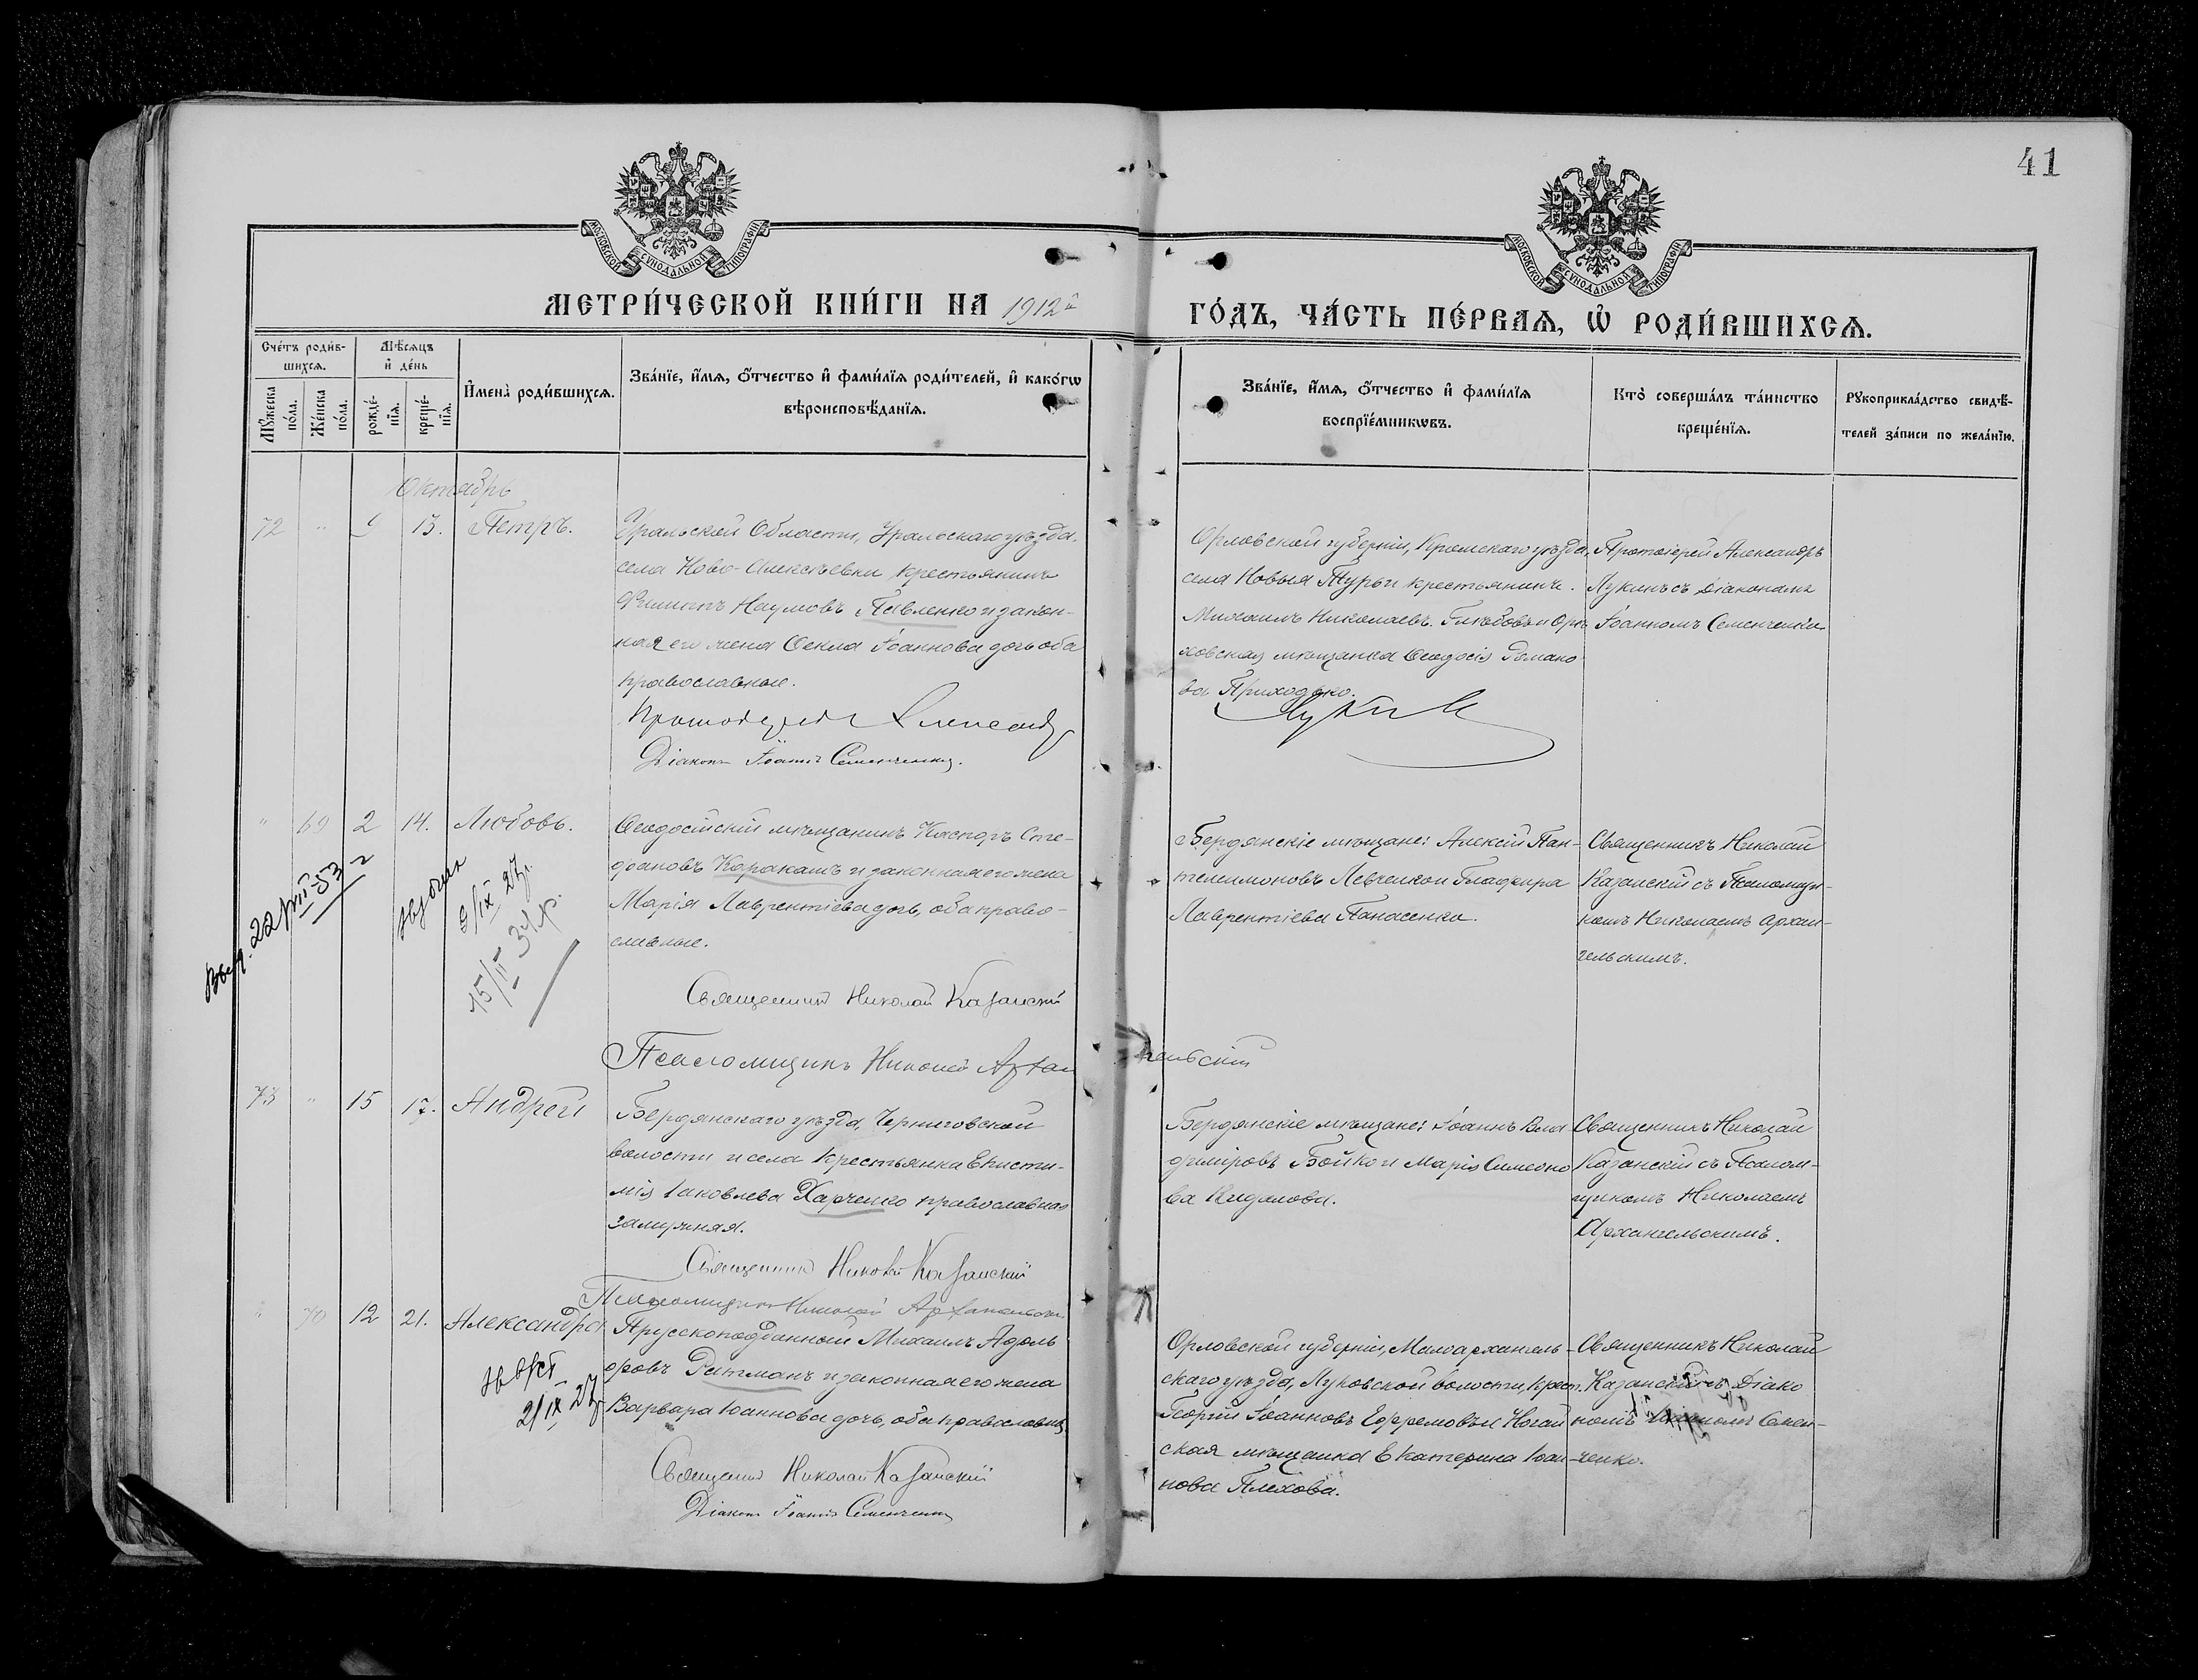 41
МОСКОВСКОЙ СѴНОДАЛЬНОЙ ТИПОГРАФІИ
МОСКОВСКОЙ СѴНОДАЛЬНОЙ ТИПОГРАФІИ
МЕТРИ́ЧЕСКОЙ КНИ́ГИ НА 1912й
ГО́ДЪ, ЧА́СТЬ ПЕ́РВАѦ, Ѡ҆ РОДИ́ВШИХСѦ.
Сче́тъ роди́в-
шихсѧ.
Мѣ́сѧцъ
и҆ де́нь
Мꙋ́жеска по́ла.
Же́нска по́ла.
рожде́-нїѧ.
креще́-нїѧ.
И҆мена̀ роди́вшихсѧ.
Зва́нїе, и҆́мѧ, ѻ҆́тчество и҆ фами́лїѧ роди́телей, и҆ како́гѡ
вѣроисповѣ́данїѧ.
Зва́нїе, и҆́мѧ, ѻ҆́тчество и҆ фами́лїѧ
воспрїе́мникѡвъ.
Кто̀ соверша́лъ та́инство
креще́нїѧ.
Рꙋкоприкла́дство свидѣ́-
телей за́писи по жела́нїю.
Октябрь
72 " 9 13. Петръ.
Уральской Области, Уральскаго уѣзда,
села Ново-Алексѣевки крестьянинъ
Филиппъ Наумовъ Павленко и закон-
ная его жена Ѳекла Іоаннова дочь оба
православные.
Протоіерей Александр
Діаконъ Іоаннъ Семенченко.
Орловской губерніи, Кромскаго уѣзда,
села Новыя Турьи крестьянинъ
Михаилъ Николаевъ Глѣбовъ и Орѣ-
ховская мѣщанка Ѳеодосія Романо-
ва Приходько.
Лукин
Протоіерей Александръ
Лукинъ съ Діакономъ
Іоанномъ Семенченко
" 69 2 14. Любовь.
Ѳеодосійскій мѣщанинъ Касторъ Сте-
фановъ Каракашъ и законная его жена
Марія Лаврентіева дочь, оба право-
славные.
Священникъ Николай Казанскій
Псаломщикъ Николай Архан
гельскій
Выд. 22/VII-53 г
9/IX 27г.
15/II 34 г.
Бердянскіе мѣщане: Алексій Пан-
телеимоновъ Левченко и Глафира
Лаврентіева Панасенко.
Священникъ Николай
Казанскій съ Псаломщи-
комъ Николаемъ Архан-
гельскимъ.
73 " 15 17. Андрей
Бердянскаго уѣзда, Черниговской
волости и села крестьянка Евисти-
мія Іаковлева Харченко православная
замужняя.
Священникъ Николай Казанскій
Псаломщикъ Николай Архангельскій
Бердянскіе мѣщане: Іоаннъ Вла
диміровъ Бойко и Марія Симеоно
ва Кидалова.
Священникъ Николай
Казанскій съ Псалом-
щикомъ Николаемъ
Архангельскимъ.
" 70 12 21. Александра
Прусскоподданный Михаилъ Адоль
фовъ Ритманъ и законная его жена
Варвара Іоаннова дочь, оба православные
Священникъ Николай Казанскій
Діаконъ Іоаннъ Семенченко
21/IX 27г
Орловской губерніи, Малоархангель-
скаго уѣзда, Луковской волости, крест.
Георгій Іоанновъ Ефремовъ и Ногай
ская мѣщанка Екатерина Іоан-
нова Плехова.
Священникъ Николай
Казанскій съ Діако
номъ Іоанномъ Семен-
ченко.